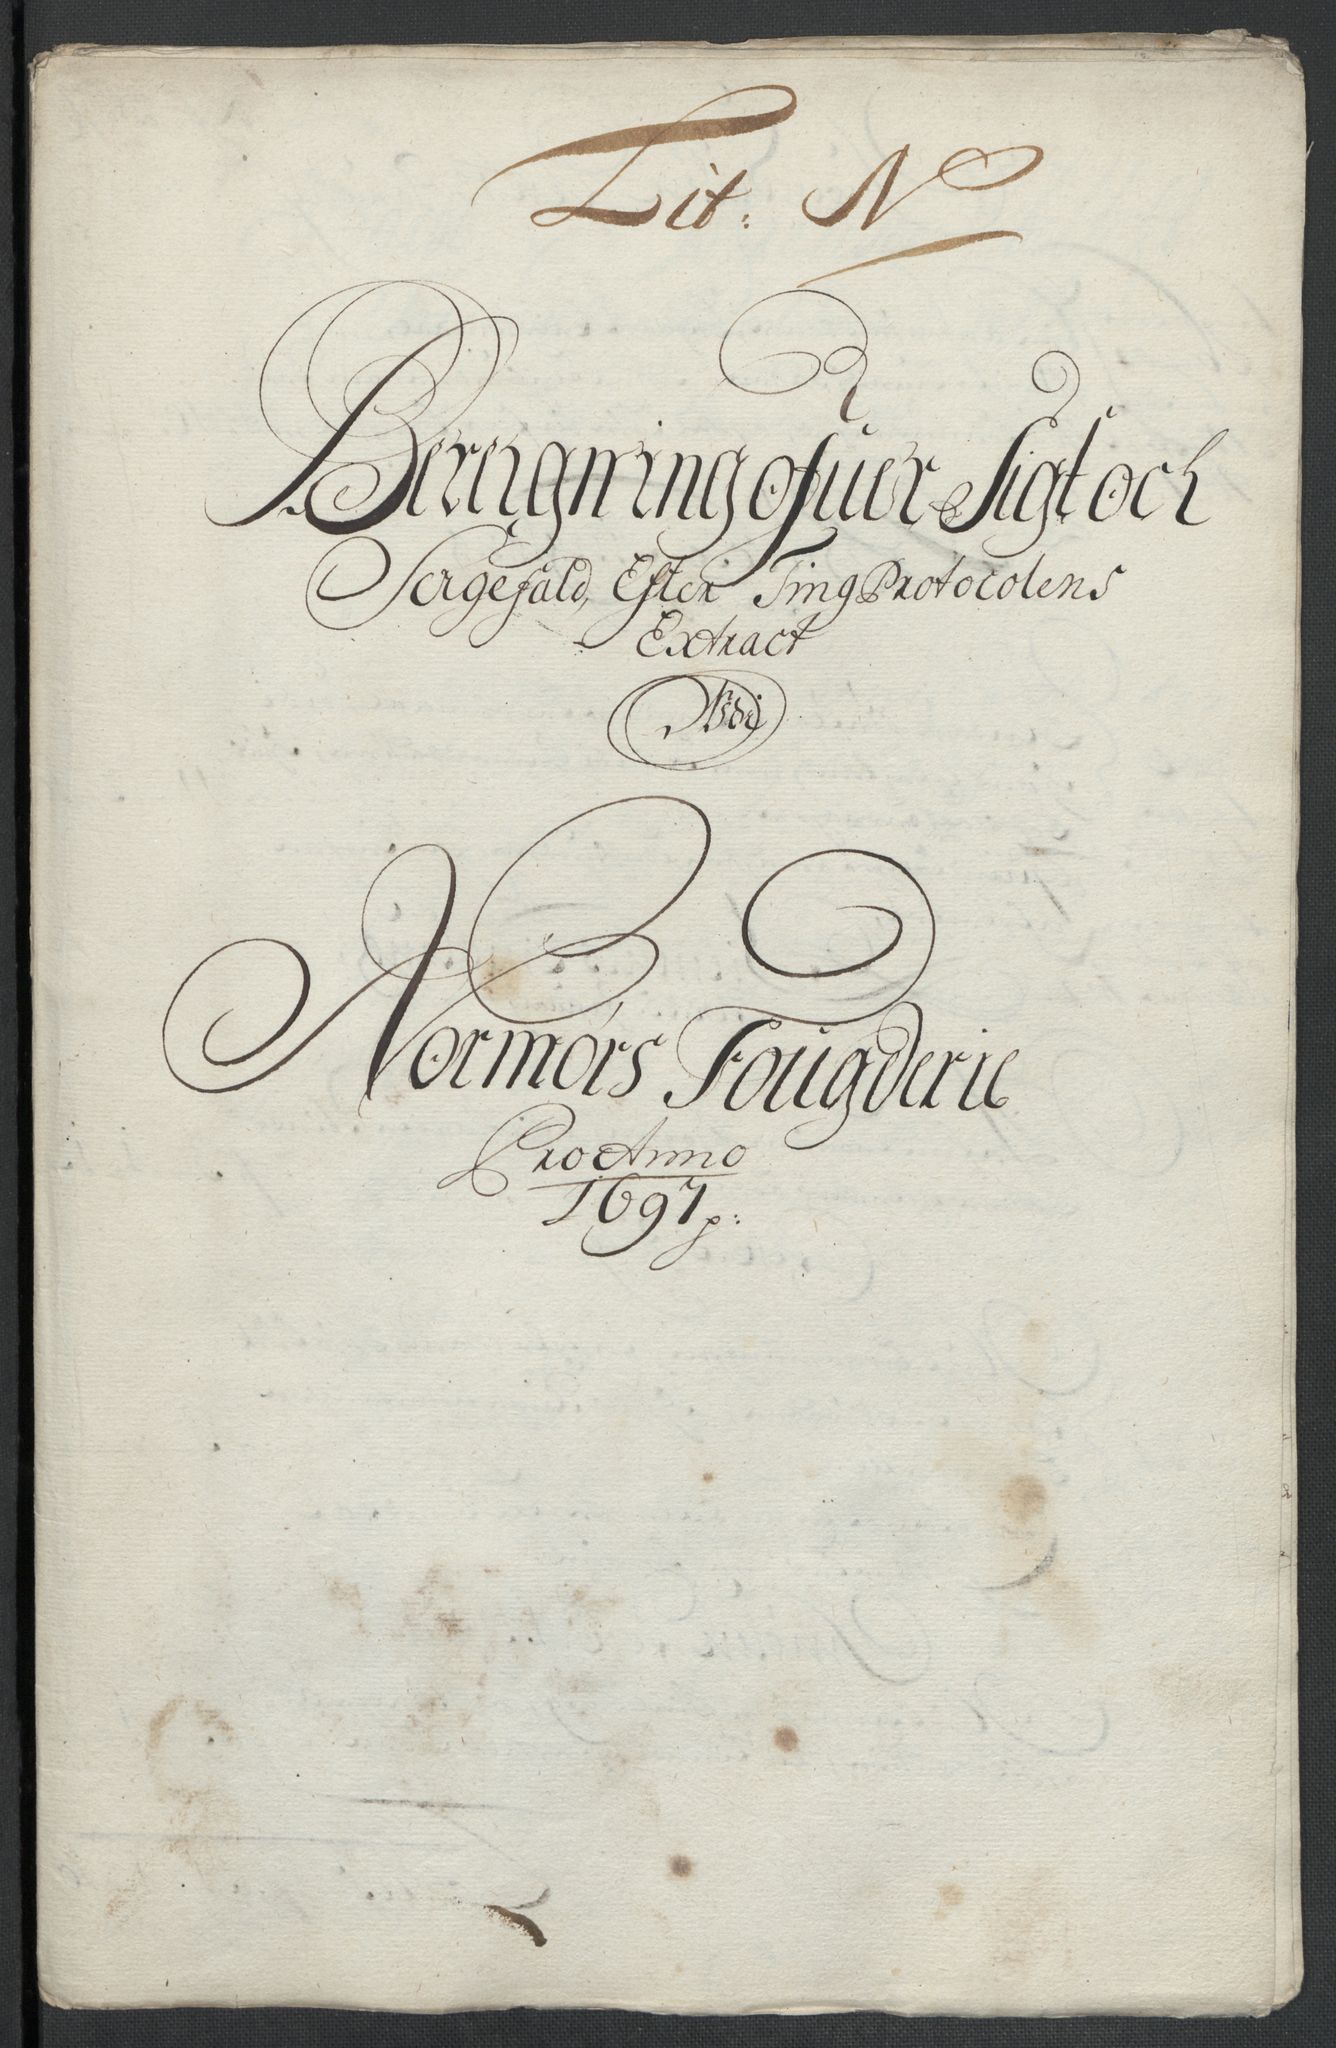 Lit: N
Bereigning ofuer Sigt och
Sagefald, Efter Ting Protocolens
Extract
Udi
Normørs Fougderie
Pro Anno
1697 p: